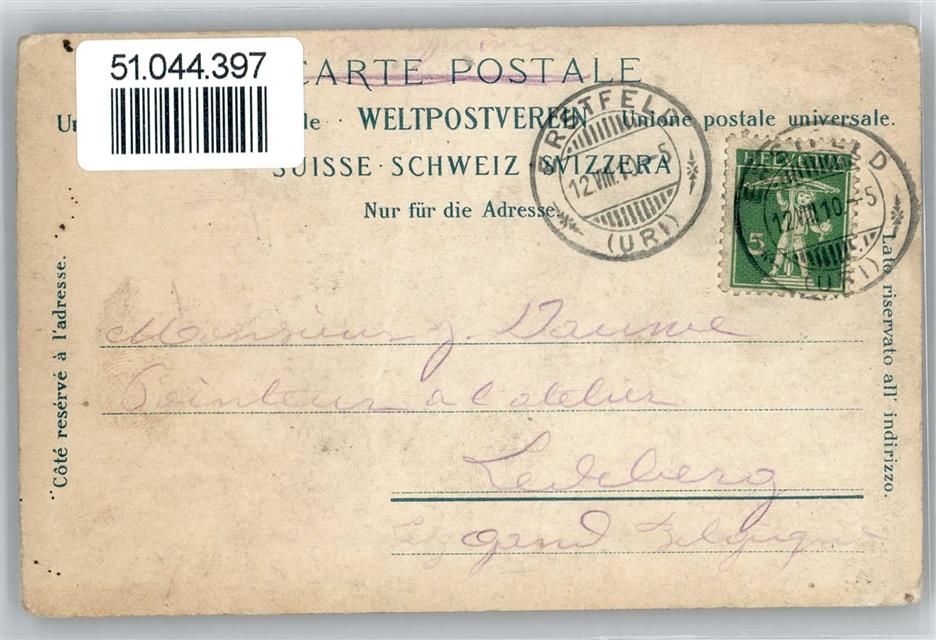 51.044.397
CARTE POSTALE
le · WELTPOSTVEREIN · Unione postale universale.
SUISSE · SCHWEIZ · SVIZZERA
Nur für die Adresse.
ERSTFELD
12.VIII.10.-5
(URI)
HELVETIA
5
12.VIII.10.-5
(URI)
Côté resérvé à l'adresse.
Lato riservato all' indirizzo.
Monsieur J. Daume
Pointeur a l'atelier
Ledeberg
Lez gand Belgique